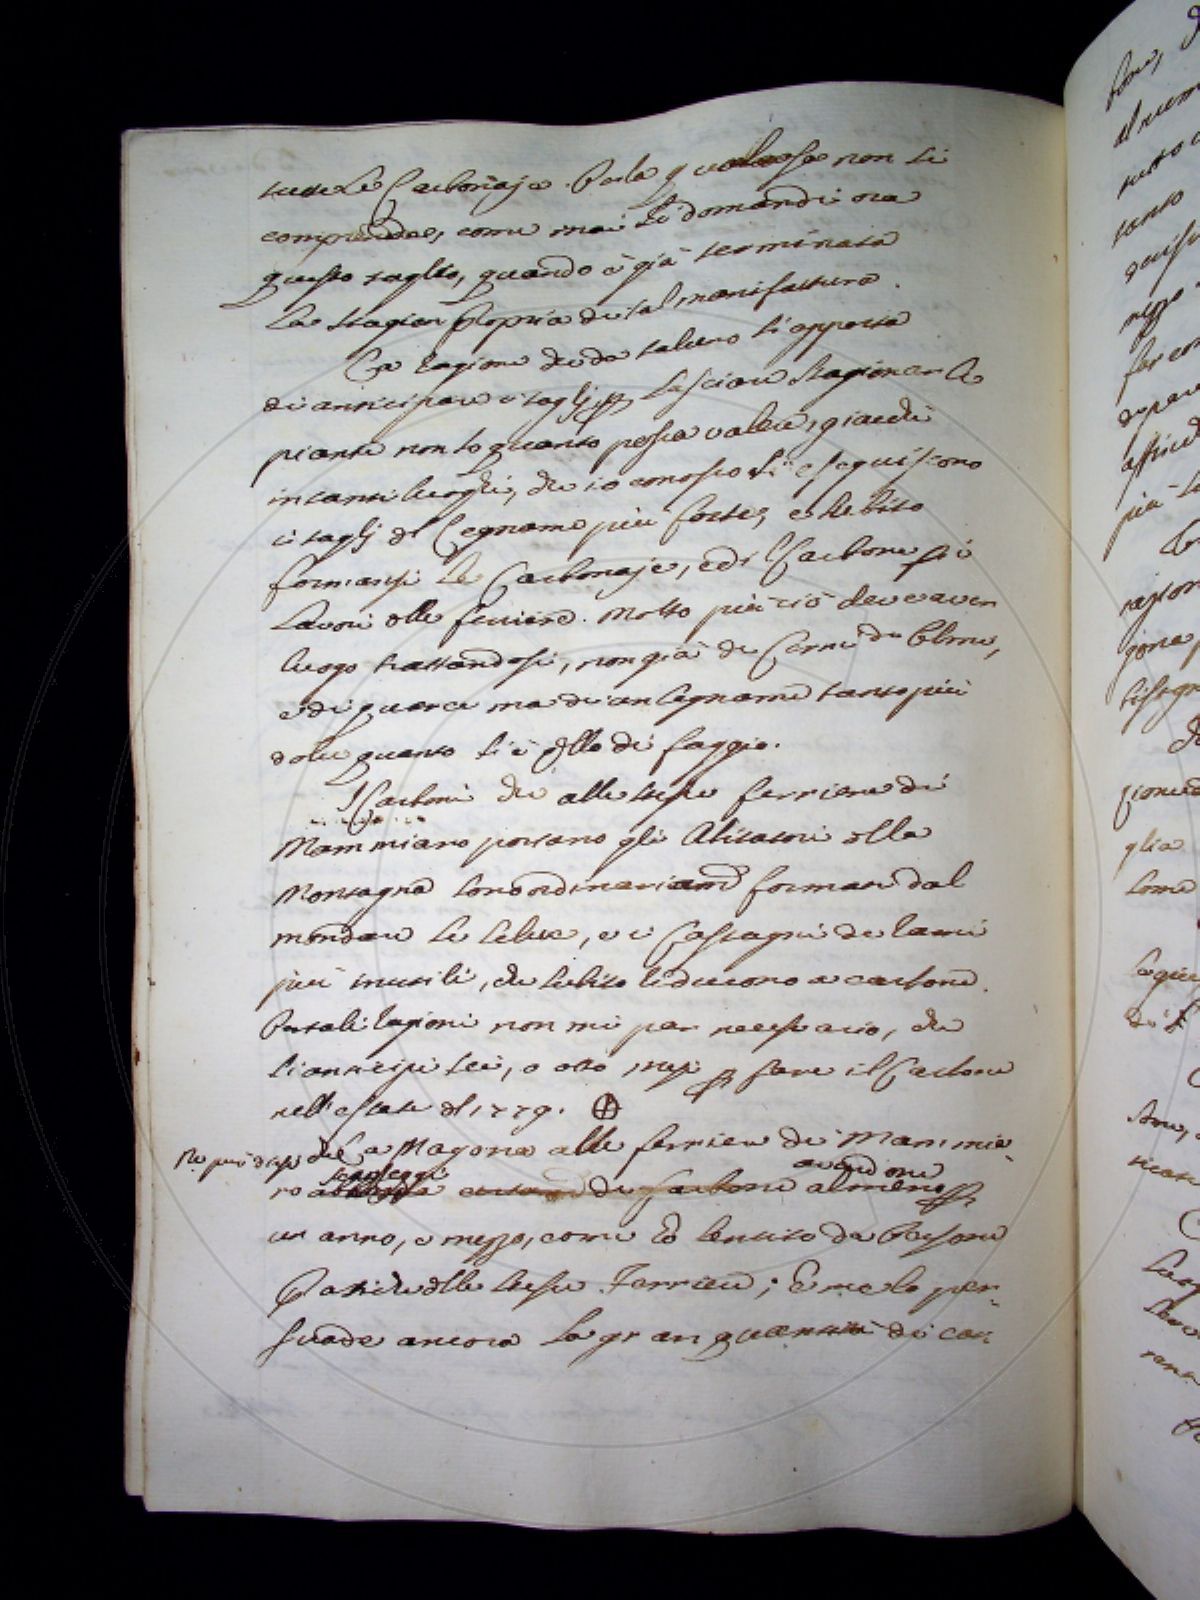 tutte le Carbonaje. Per la qual cosa non si
comprende, come mai si domandi ora
questo taglio, quando è già terminata
la stagion propria di tal manifattura.
La ragione che da taluno si apporta
di anticipare i tagli p lasciare stagionar le
piante non so quanto possa valere, giacchè
in tanti luoghi, che io conosco si eseguiscono
i tagli di legname più forte, e subito
formansi le Carbonaje, ed il Carbone si
lavori alle ferriere. Molto più ciò deve aver
luogo trattandosi, non già di Cerri di Olmi,
e di querce ma di un legname tanto più
dolce quanto si è qllo di faggio.
I Carboni che alle stesse ferriere di
Mammiano portano gli Abitatori della
Montagna son ordinariamte formati dal
mondare le selve, e i Castagni de rami
più inutili, che subito riducono a carbone.
Per tali ragioni non mi par necessario, che
si anticipi sei, o otto mesi p fare il Carbone
nell'estate del 1779. ⊕
Ne può dirsi che la Magona alle ferriere di Mammia-
no scarseggi di Carbone avendone almeno p
un anno, e mezzo, come ò sentito da Persone
Pratiche delle stesse Ferriere; E me lo per-
suade ancora la gran quantità di car-